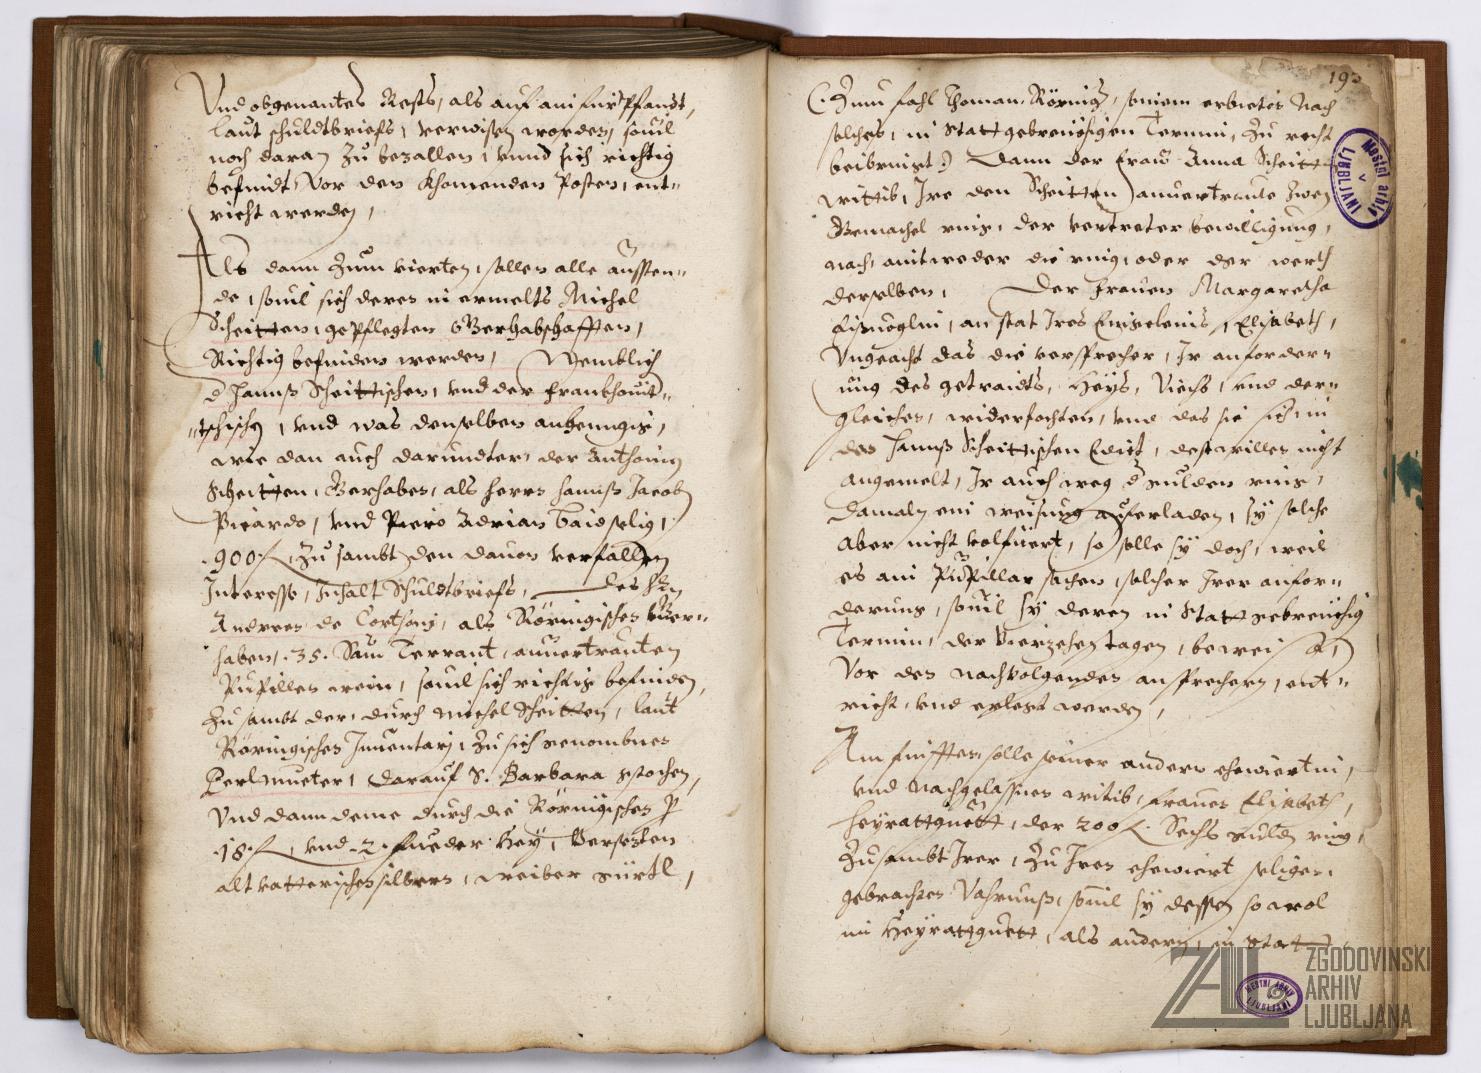 Vnd obgenantes Rests, als auf ain fürpfandt,
laut schuldtbriefs, verwisen worden, souil
noch daran zu bezallen, vnnd sich richtig
befindt, vor den khomenden Posten, ent-
richt werden,
Als dann zum vierten, sollen alle aussten-
de, souil sich deren in ermelts Michel
Scheitten, gepflegten Gerhabschafften,
Richtig befinden werden, Nemblich
d Hannß Scheittischen, vnd der
vnd was denselben anhenngig,
wie dan auch darundter, der Anthonij
Scheitten, Gerhaben, als Herrn Hannß Jacob
Picardo, vnd Piero Adrian selig,
900 f, zu sambt den dauon verfallen
Interesse, Inhalt Schuldtbriefs, des Hrn
Andreen de Cortsonj, als Röringischen Ger-
haben, 35. Sam Terrant, anuertrauten
Pupillen wein, souil sich richtig befinden,
zu sambt der, durch Michel Scheitten, laut
Röringischen Inuentarj, zu sich genombnen
Perlmueter, darauf S. Barbara gstochen,
Vnd dann deme durch die Röringischen p
18 f, vnd 2 fueder Hey, Versezten
alt vatterischen silbren, weiber gürtl,
193
selches, in Stattgebreüchigen Termin, zu recht
beibringt) Dann der Fraw Anna Scheitt
wittib, Ire den Scheitten anuertraute zwen
der vertreter bewilligung,
nach, aintweder die ring, oder der werth
derselben, Der Frauen Margaretha
an stat Ires Elisabeth,
Vngeacht das die versprecher, Ir anforder-
ung des getraidts, Heys, Viechs, vnd der-
gleichen, widerfochten, vnd das sie sich in
den Hannß Scheittischen Edict, nicht
angemelt, Ir auch weg d gulden ring,
Damaln ein weisung auferladen, sy solche
aber nicht volfüert, so solle sy doch, weil
es ain Pupillar sachen, solcher Irer anfor-
derung, souil sy deren in Stattgebreüchig
Termin, der vierzehen tagen, beweist,
Vor den nachvolgenden ansprechern, ent-
richt, vnd erlegt werden,
Am fünfften, solle seiner andern ehewiertin,
vnd nachgelassnen wittib, Frauen Elisabeth,
Heyrattguett, der 200 f. Sechs gulden ring,
zusambt Irer, zu Iren ehewiert seligen,
gebrachten Vahrnuß, souil sy dessen so wol
in Heyrattguett, als andern, in Statt
Mestni arhiv v Ljubljani
MESTNI ARHIV LJUBLJANI
ZAL
ZGODOVINSKI
ARHIV
LJUBLJANA